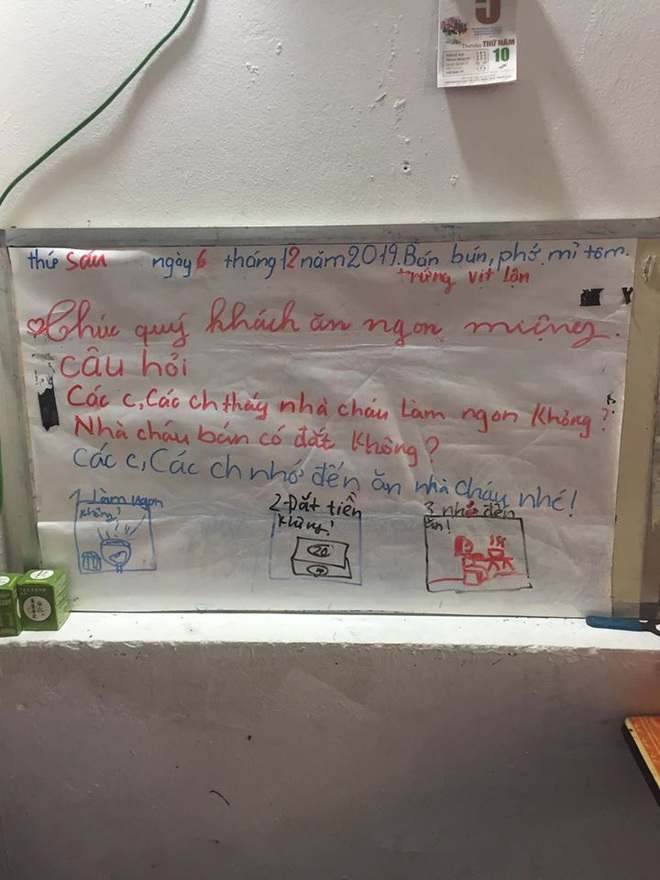 5
THỨ NĂM
10
thứ sáu ngày 6 tháng 12 năm 2019. Bán bún, phở, mì tôm.
trứng vit lộn
Chúc quý khách ăn ngon miệng.
câu hỏi
Các c, Các ch tháy nhà cháu Làm ngon không?
Nhà cháu bán có đắt không?
Các c, Các ch nhớ đến ăn nhà cháu nhé!
1 Làm ngon không?
2. Đắt tiền không?
3 nhớ đến ăn!
20